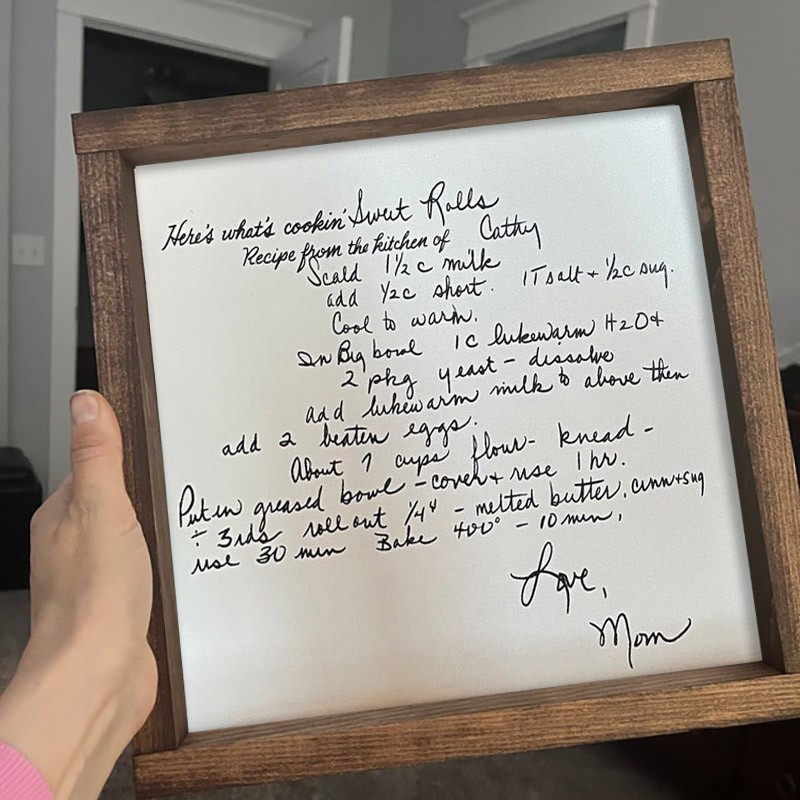 Here's what's cookin' Sweet Rolls
Recipe from the kitchen of Cathy
Scald 1 1/2 c milk
add 1/2 c short. 1 T salt + 1/2 c sug.
Cool to warm.
In Big bowl 1 c lukewarm H2O +
2 pkg yeast - dissolve
add lukewarm milk to above then
add 2 beaten eggs.
About 7 cups flour - knead -
Put in greased bowl - cover + rise 1 hr.
÷ 3rds roll out 1/4" - melted butter, cinn + sug
rise 30 min Bake 400° - 10 min.
Love,
Mom